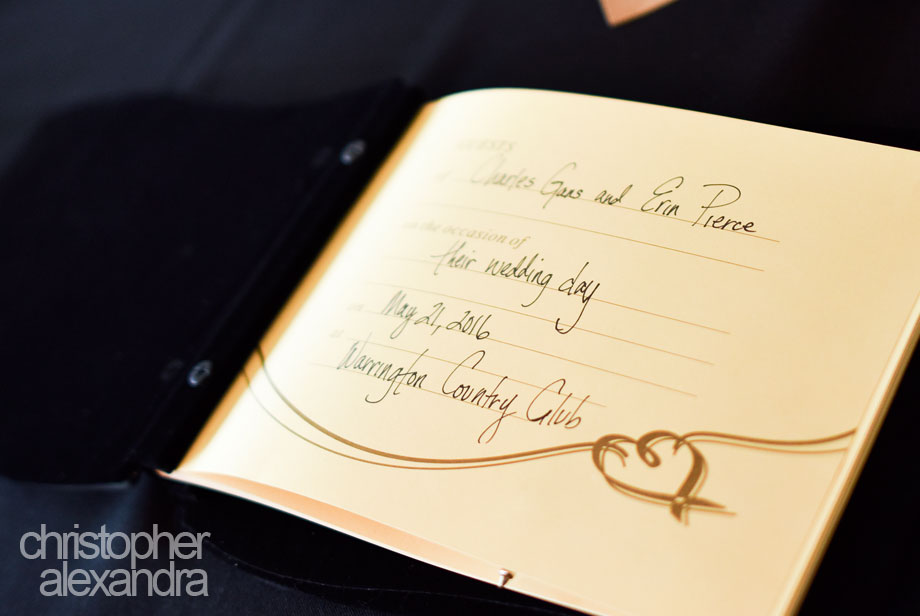 GUESTS
of Charles Gaas and Erin Pierce
on the occasion of
their wedding day
on May 21, 2016
at Warrington Country Club
christopher
alexandra